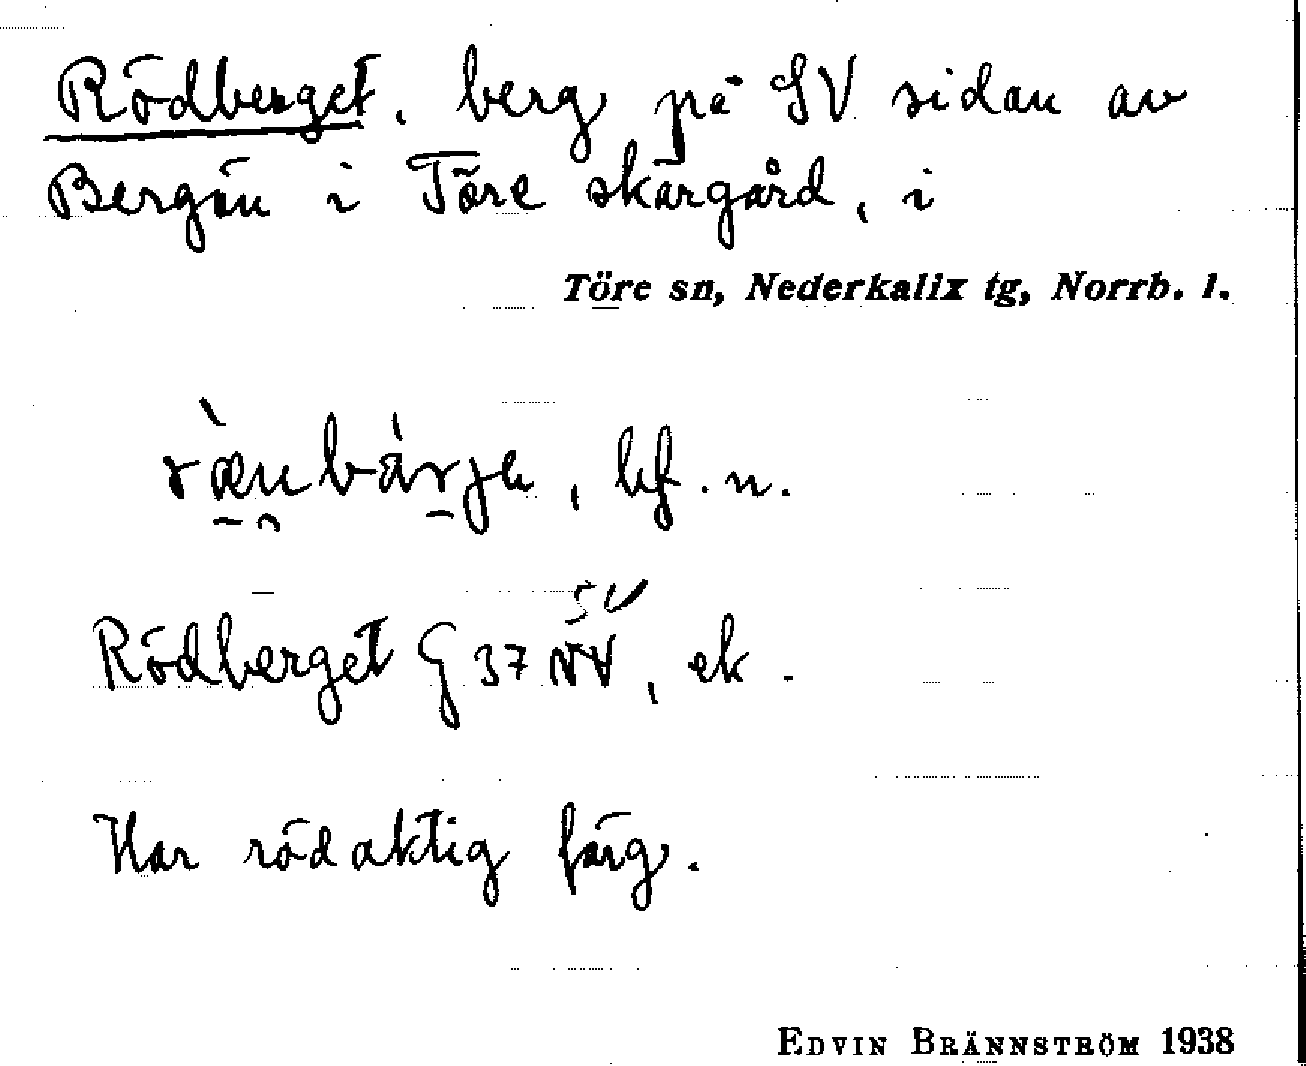 Rödberget, berg på SV sidan av
Bergön i Töre skärgård, i
Töre sn, Nederkalix tg, Norrb. l.
bf. n.
SV
Rödberget G 37 NV, ek.
Har rödaktig färg.
EDVIN BRÄNNSTRÖM 1938